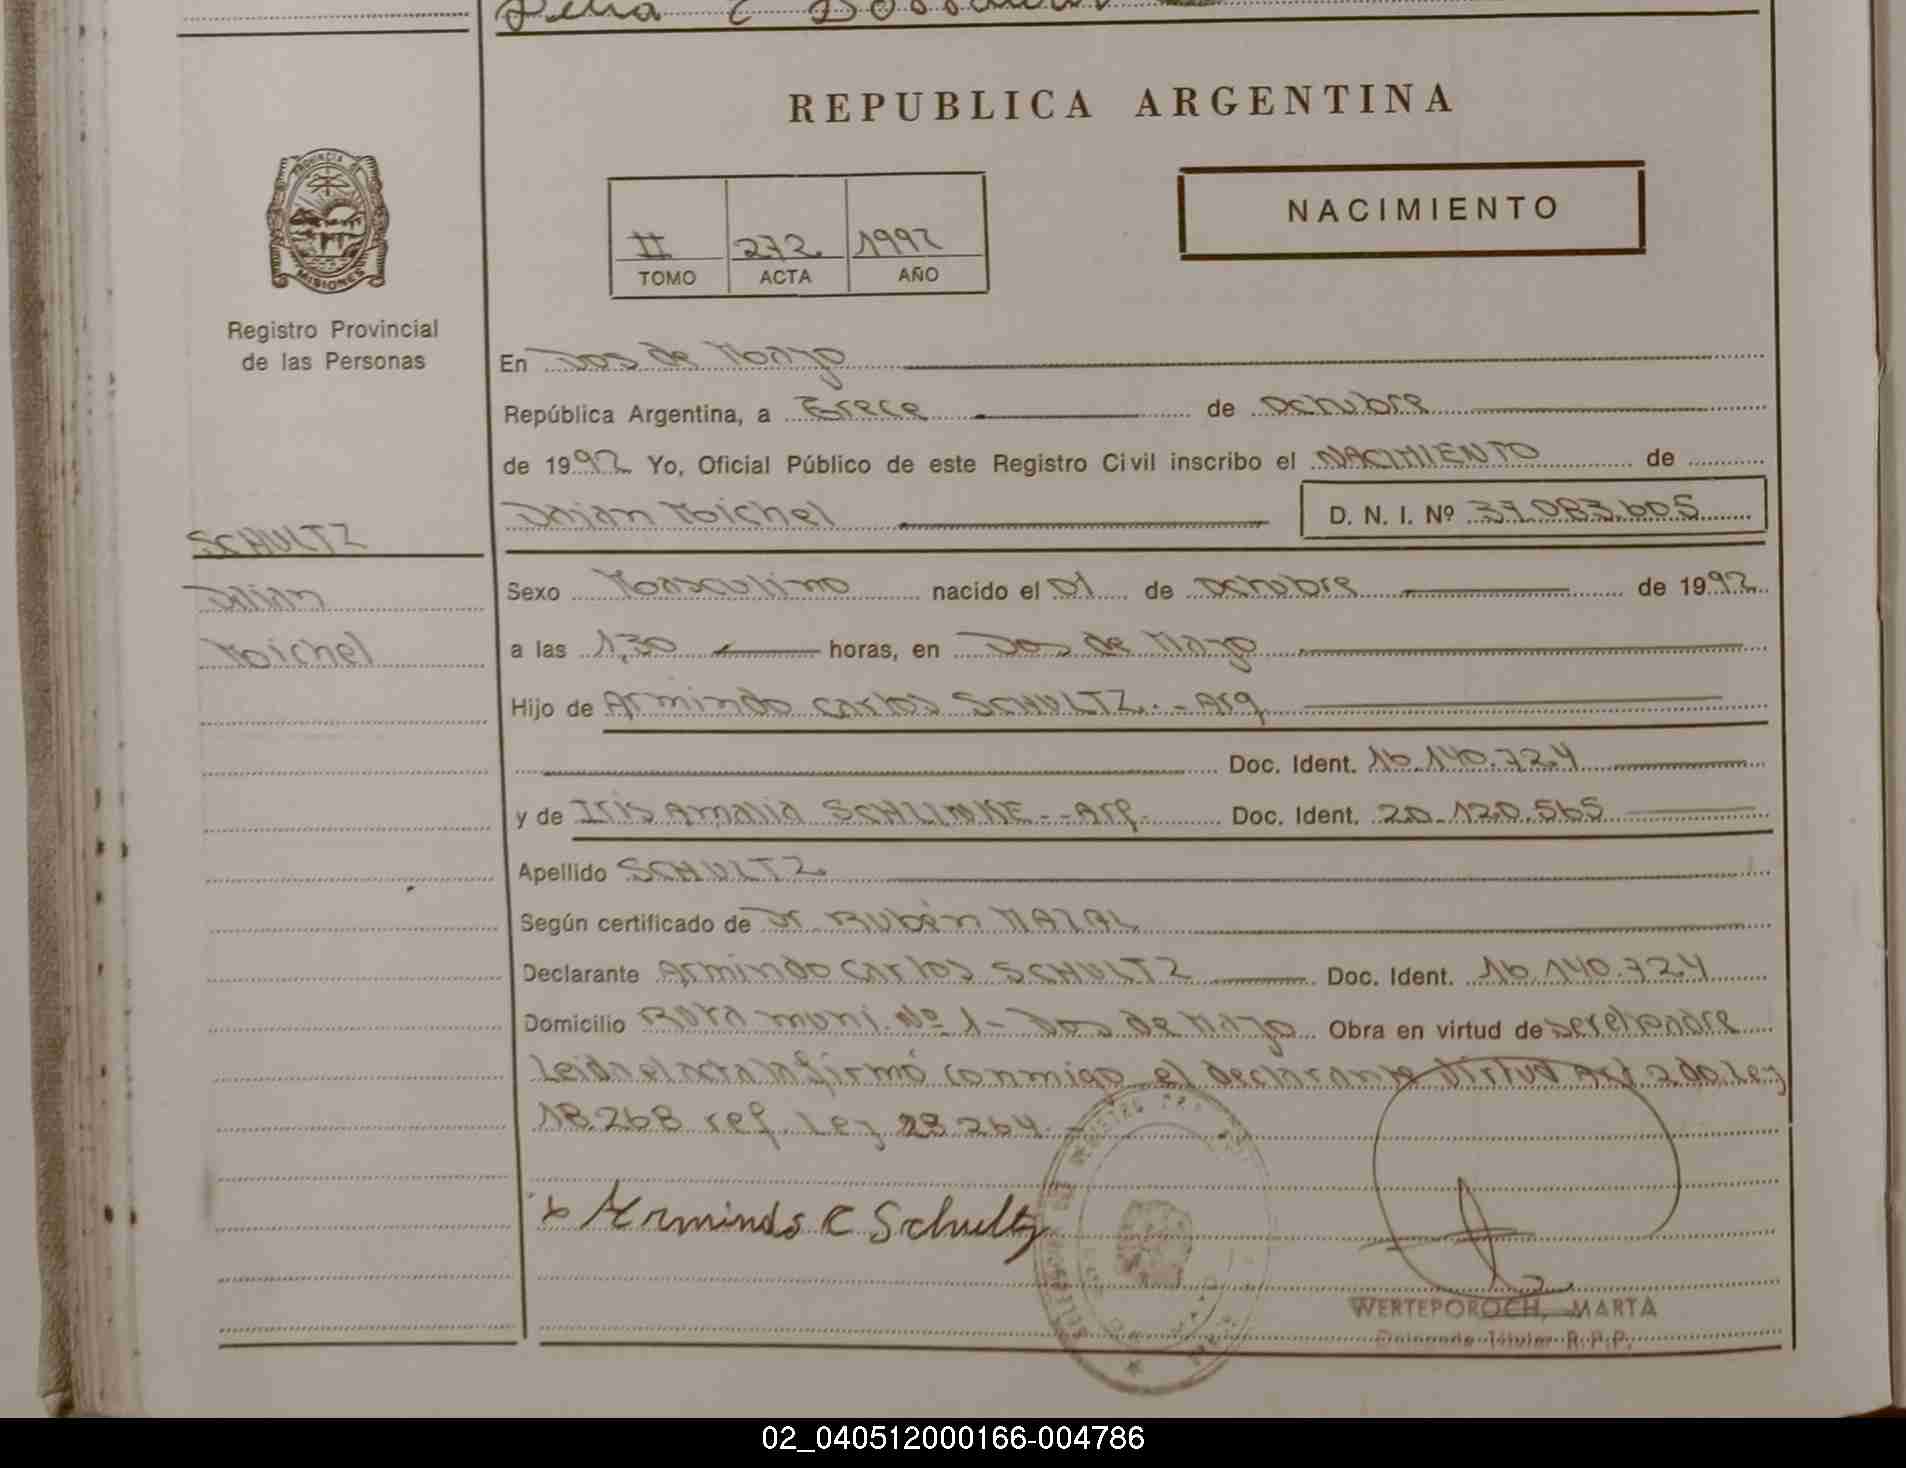 REPUBLICA ARGENTINA
PROVINCIA DE
MISIONES
II 272 1992
TOMO ACTA AÑO
NACIMIENTO
Registro Provincial
de las Personas
En Dos de Mayo
República Argentina, a Trece de octubre
de 1992 Yo, Oficial Público de este Registro Civil inscribo el NACIMIENTO de
Daian Maichel D. N. I. Nº 37.083.605
SCHULTZ
Daian
Maichel
Sexo Masculino nacido el 01 de octubre de 1992
a las 1,30 horas, en Dos de Mayo
Hijo de Armindo Carlos SCHULTZ.-Arg
Doc. Ident. 16.140.724
y de Iris Amalia Doc. Ident. 20.120.565
Apellido SCHULTZ
Según certificado de Dr Rubén
Declarante Armindo Carlos SCHULTZ Doc. Ident. 16.140.724
Domicilio Ruta muni. Nº 1 - Dos de Mayo Obra en virtud de ser el padre
Leida el acta la firmó conmigo el declarante Virtud Art 2do. Ley
18.268 ref. Ley 23.264.-
x Armindo C Schultz
WERTEPOROCH, MARTA
Delegada Titular R.P.P.
02_040512000166-004786